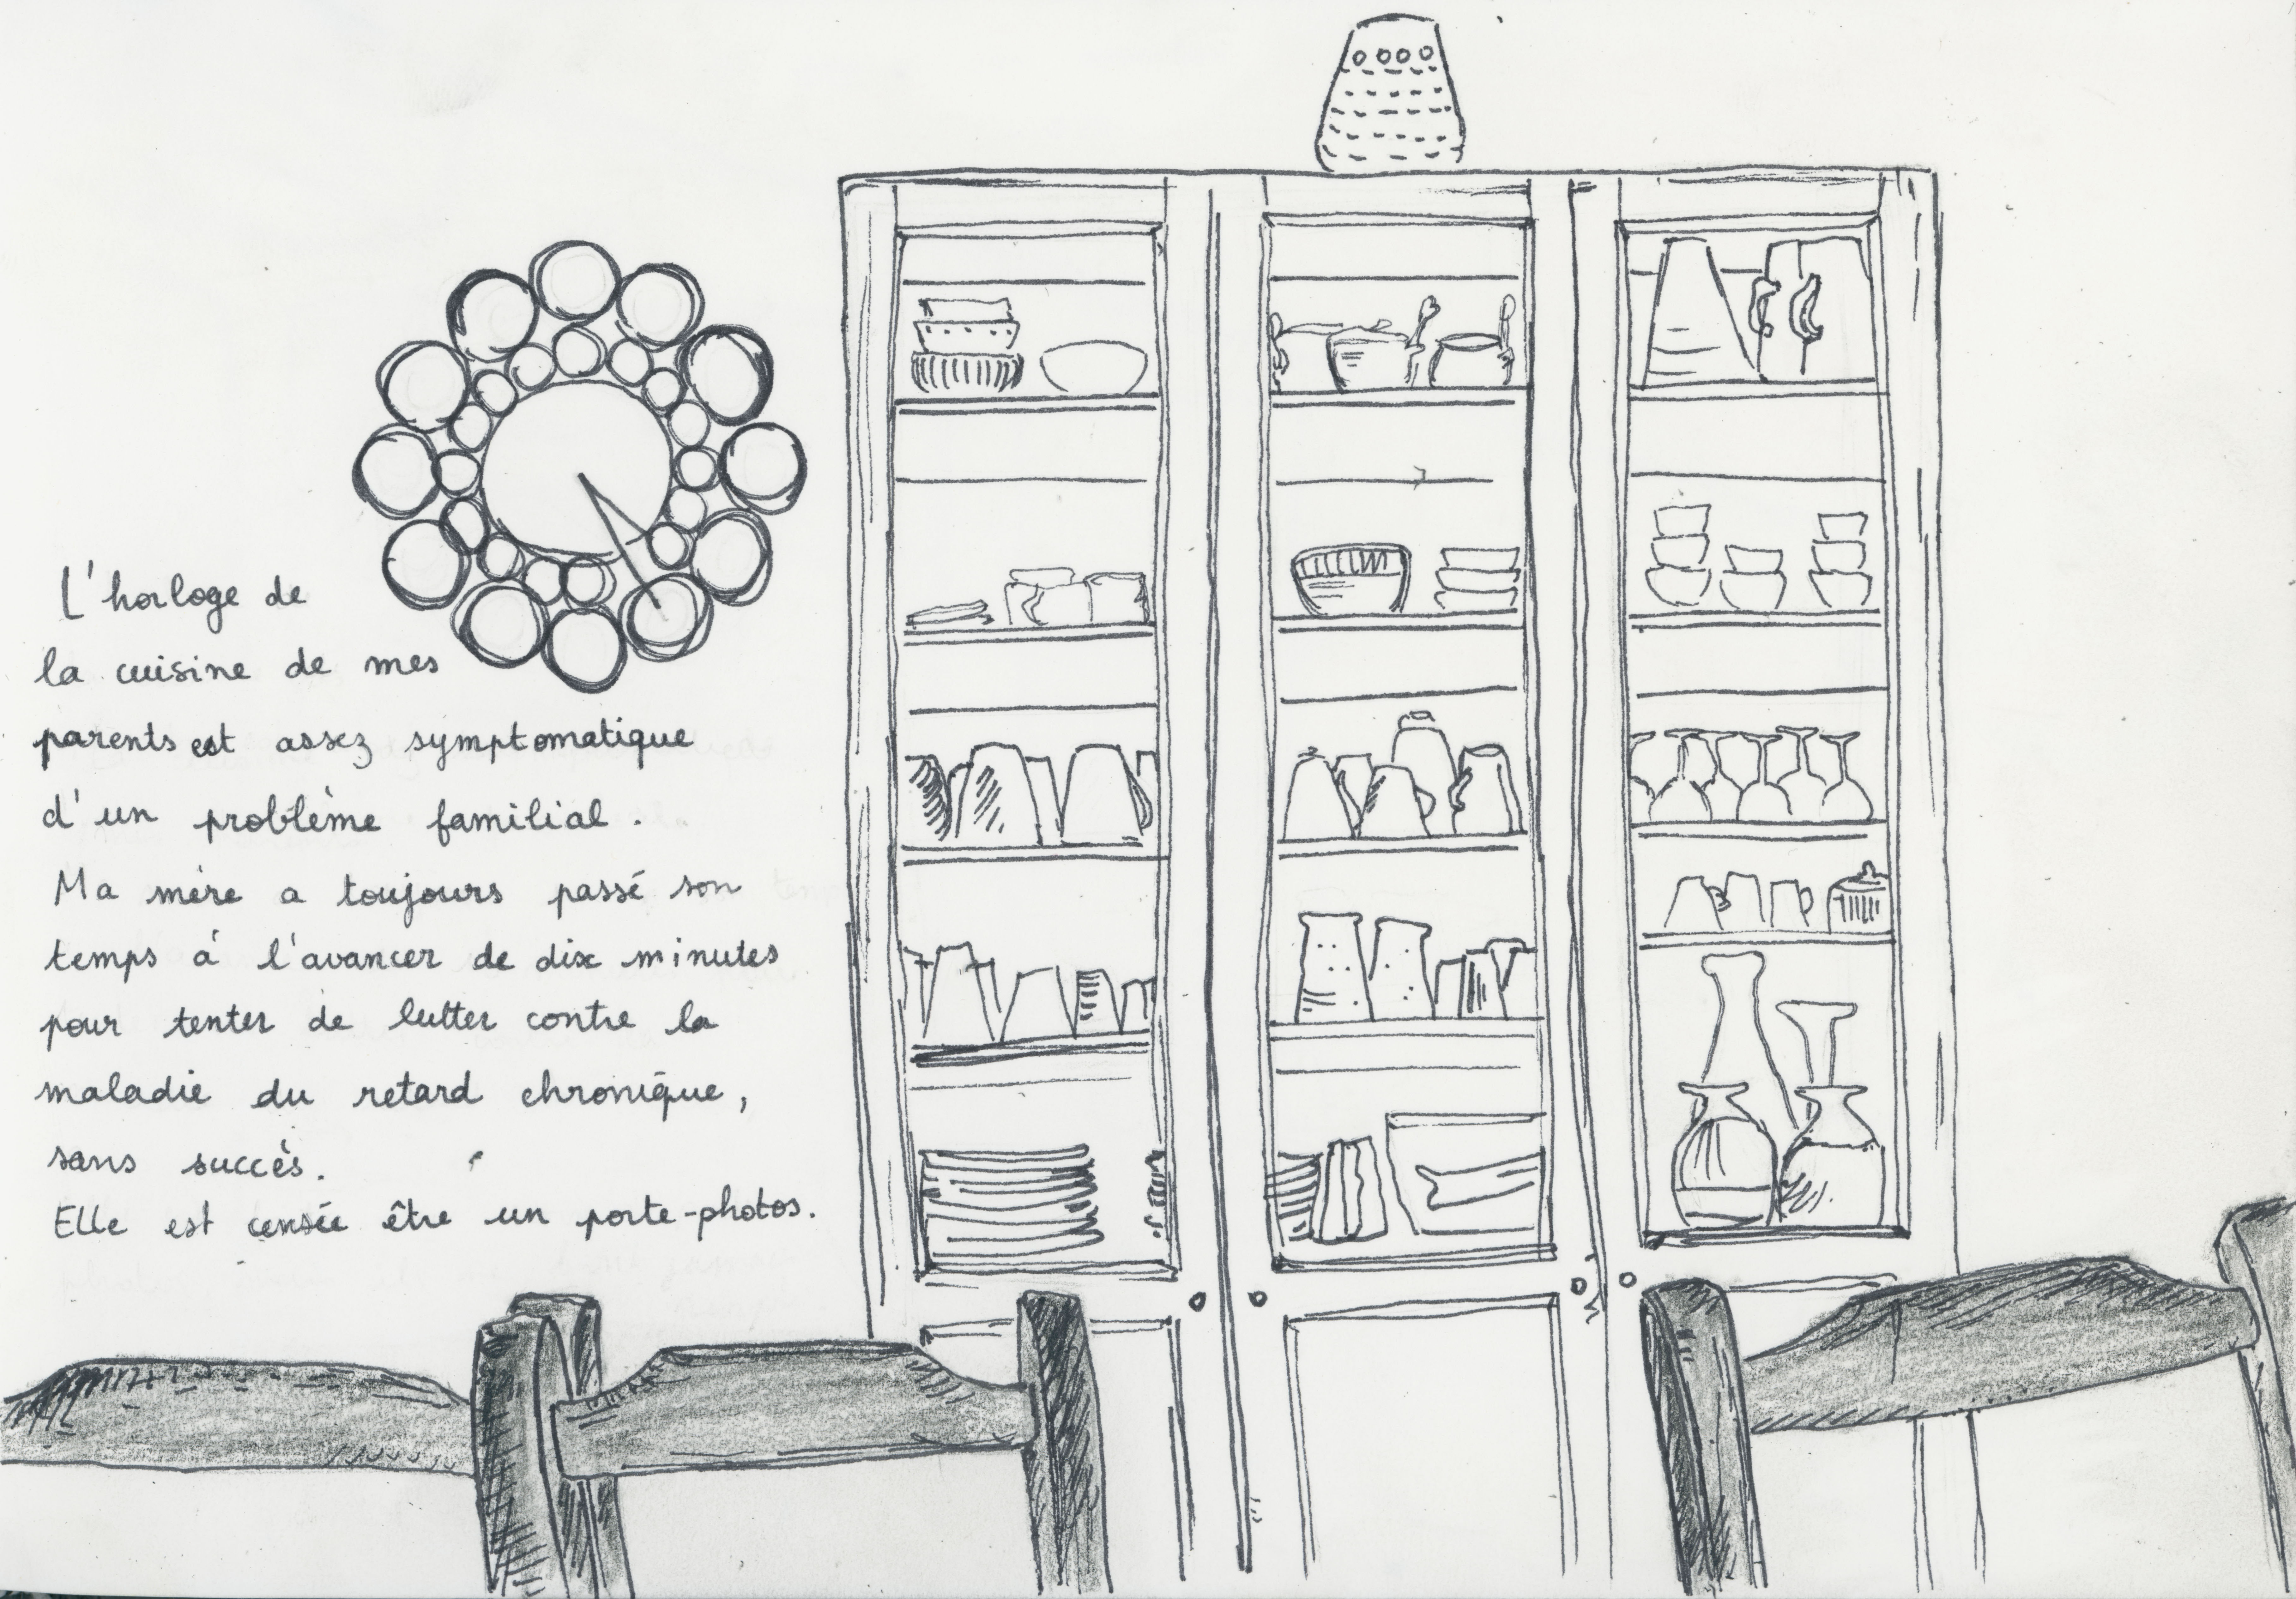 L'horloge de
la cuisine de mes
parents est assez symptomatique
d'un problème familial.
Ma mère a toujours passé son
temps à l'avancer de dix minutes
pour tenter de lutter contre la
maladie du retard chronique,
sans succès.
Elle est censée être un porte-photos.